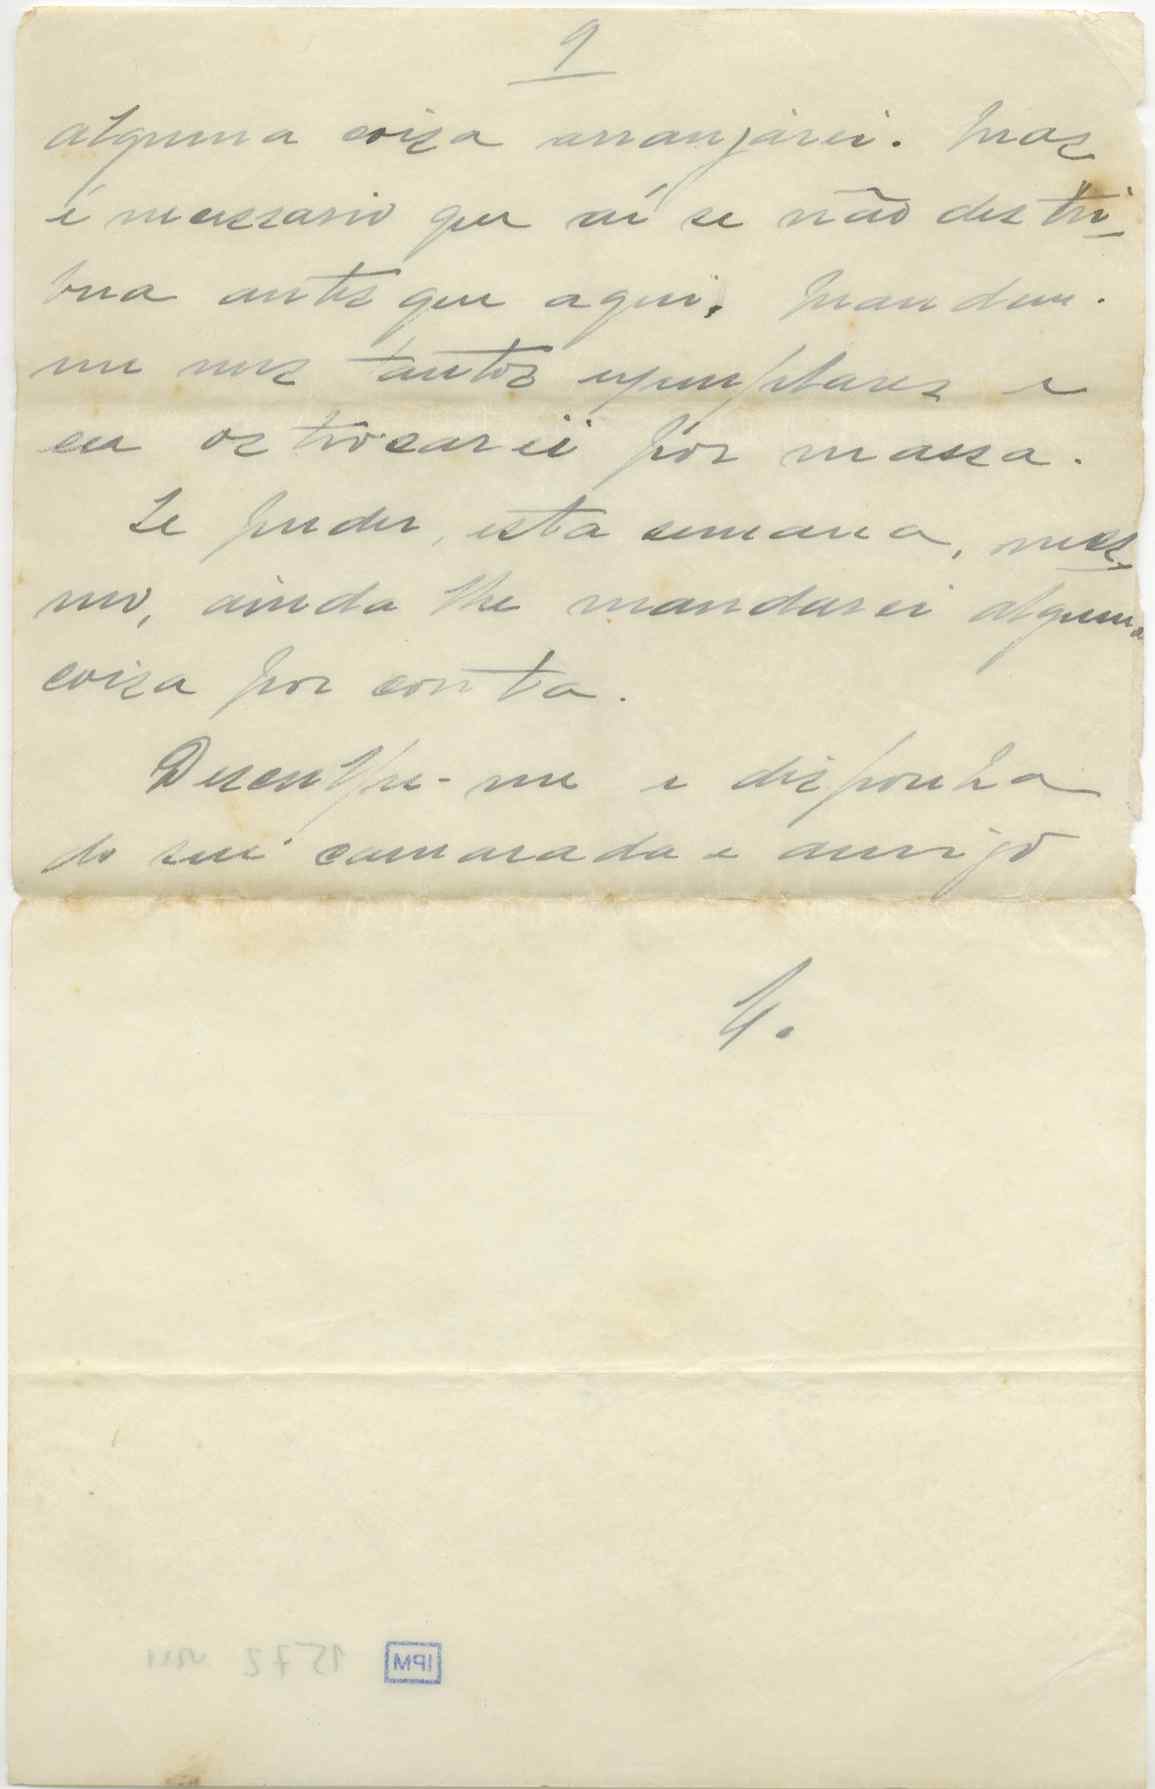 9
alguma coisa arranjárei. Mas
é necessario que aí se não distri-
bua antes que aqui. Mandem-
me uns tantos exemplares e
eu os trocarei por massa.
Se puder, esta semana, mes-
mo, ainda lhe mandarei alguma
coisa por conta.
Desculpe-me e disponha
do seu camarada e amigo
1572
IPM